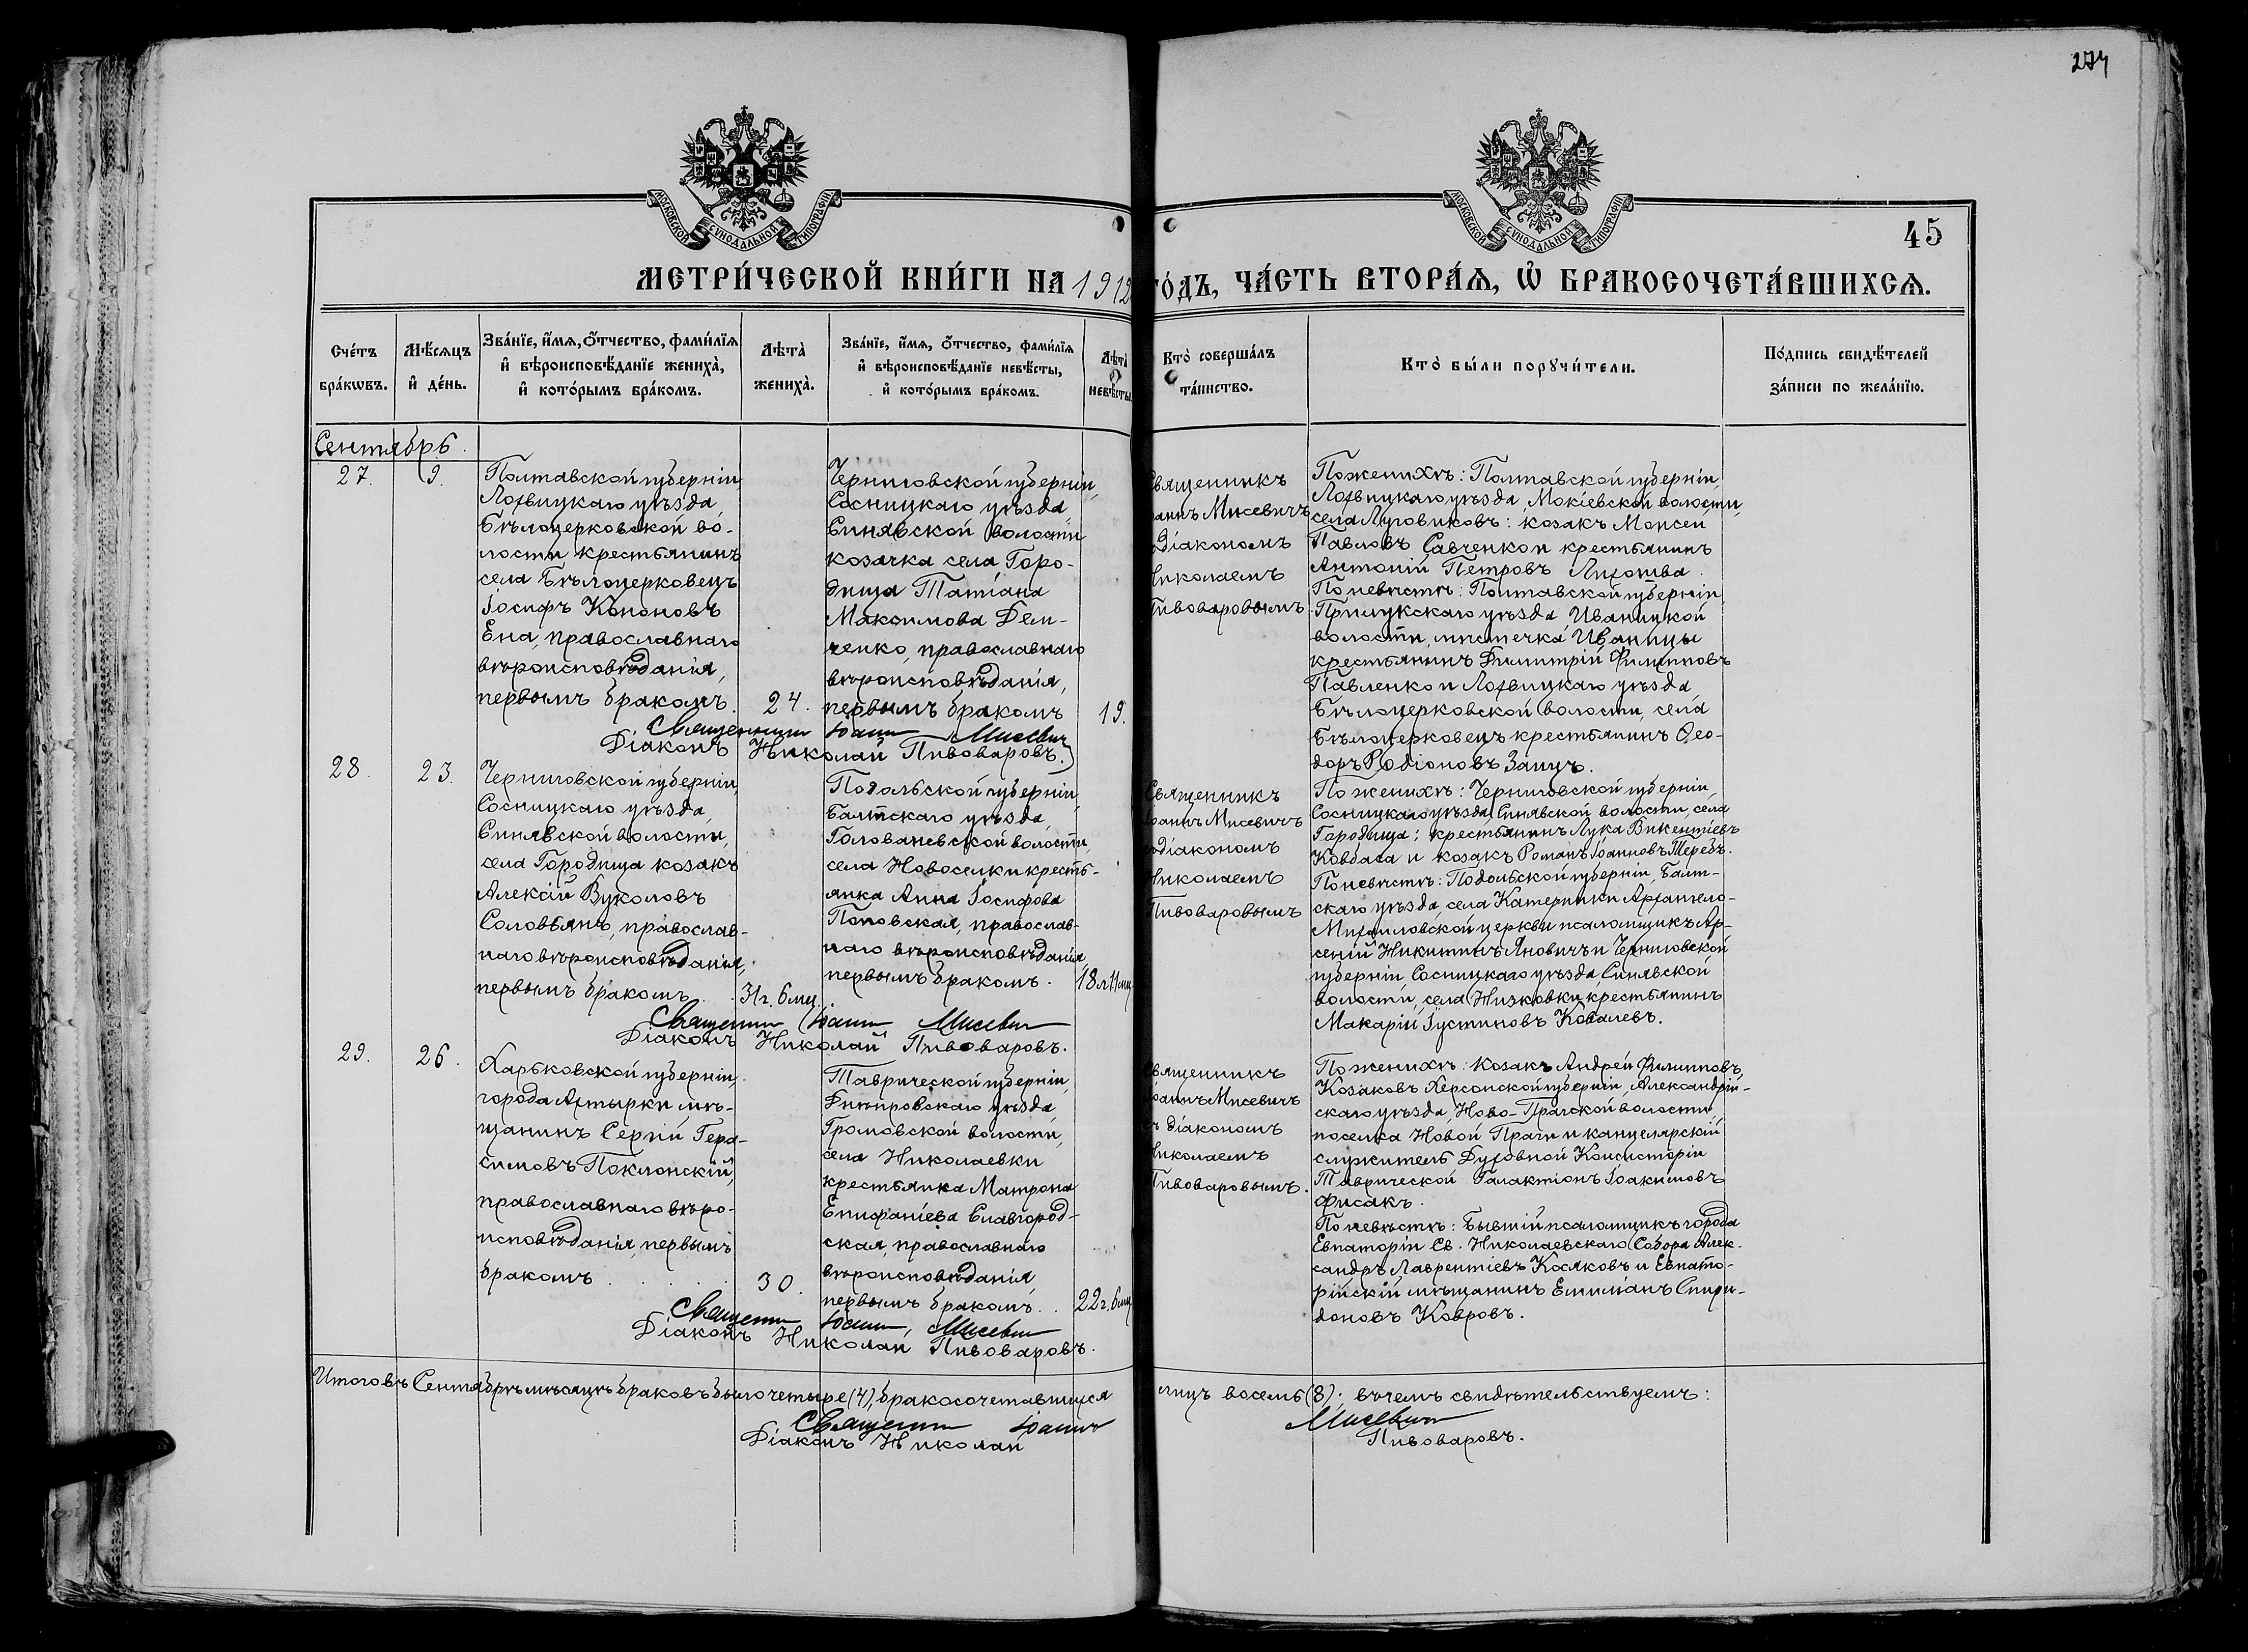 274
МОСКОВСКОЙ СѴНОДАЛЬНОЙ ТИПОГРАФІИ
МОСКОВСКОЙ СѴНОДАЛЬНОЙ ТИПОГРАФІИ
45
МЕТРИ́ЧЕСКОЙ КНИ́ГИ НА 1912
ГО́ДЪ, ЧА́СТЬ ВТОРА́Ѧ, Ѽ БРАКОСОЧЕТА́ВШИХСѦ.
Сче́тъ бра́кѡвъ.
Мѣ́сѧцъ и҆ де́нь.
Зва́нїе, и҆́мѧ, ѻ҆́тчество, фами́лїѧ и҆ вѣроисповѣ́данїе жениха̀, и҆ кото́рымъ бра́комъ.
Лѣта̀ жениха̀.
Зва́нїе, и҆́мѧ, ѻ҆́тчество, фами́лїѧ и҆ вѣроисповѣ́данїе невѣ́сты, и҆ кото́рымъ бра́комъ.
Лѣта̀ невѣ́сты
Кто̀ соверша́лъ та́инство.
Кто̀ бы́ли порꙋчи́тели.
По́дпись свидѣ́телей за́писи по жела́нїю.
Сентябрь.
27.
9.
Полтавской губерніи,
Лохвицкаго уѣзда,
Бѣлоцерковской во-
лости крестьянинъ
села Бѣлоцерковецъ
Іосифъ Кононовъ
Ена, православнаго
вѣроисповѣданія,
первымъ бракомъ.
24.
Черниговской губерніи,
Сосницкаго уѣзда
Синявской волости
козачка села Горо-
дища Татіана
Максимова Дем-
ченко, православнаго
вѣроисповѣданія,
первымъ бракомъ
19.
Священникъ Іоаннъ Мисевичъ
Діаконъ Николай Пивоваровъ.
священникъ
оаннъ Мисевичъ
діакономъ
Николаемъ
Пивоваровымъ
По женихѣ: Полтавской губерніи,
Лохвицкаго уѣзда, Мокіевской волости,
села Луговиковъ: козакъ Моисей
Павловъ Савченко и крестьянинъ
Антоній Петровъ Лихошва.
По невѣстѣ: Полтавской губерніи
Прилукскаго уѣзда, Иваницкой
волости, мѣстечка Иваницы
крестьянинъ Димитрій Филипповъ
Павленко и Лохвицкаго уѣзда,
Бѣлоцерковской волости, села
Бѣлоцерковецъ крестьянинъ Ѳео-
доръ Родіоновъ Заицъ.
28.
23.
Черниговской губерніи,
Сосницкаго уѣзда,
Синявской волости,
села Городища козакъ
Алексій Вуколовъ
Соловьянъ, православ-
наго вѣроисповѣданія,
первымъ бракомъ.
31 г. 6 мц.
Подольской губерніи,
Балтскаго уѣзда,
Голованевской волости,
села Новоселки кресть-
янка Анна Іосифова
Поповская, православ-
наго вѣроисповѣданія,
первымъ бракомъ.
18 л. 11 мц
Священникъ Іоаннъ Мисевичъ
Діаконъ Николай Пивоваровъ.
священникъ
Іоаннъ Мисевичъ
діакономъ
Николаемъ
Пивоваровымъ
По женихѣ: Черниговской губерніи,
Сосницкаго уѣзда, Синявской волости, села
Городища: крестьянинъ Лука Викентіевъ
Ковбаса и козакъ Романъ Іоанновъ Теребъ.
По невѣстѣ: Подольской губерніи, Балт-
скаго уѣзда, села Катеринки Архангело-
Михаиловской церкви псаломщикъ Ар-
сеній Никитинъ Яновичъ и Черниговской
губерніи Сосницкаго уѣзда, Синявской
волости, села Низковки крестьянинъ
Макарій Іустиновъ Ковалевъ.
29.
26.
Харьковской губерніи,
города Ахтырки мѣ-
щанинъ Сергій Гера-
симовъ Поклонскій,
православнаго вѣро-
исповѣданія, первымъ
бракомъ
30.
Таврической губерніи,
Днѣпровскаго уѣзда,
Громовской волости,
села Николаевки
крестьянка Матрона
Епифаніева Славгород-
ская, православнаго
вѣроисповѣданія,
первымъ бракомъ.
22 г. 6 мц
Священникъ Іоаннъ Мисевичъ
Діаконъ Николай Пивоваровъ.
священникъ
Іоаннъ Мисевичъ
ъ діакономъ
Николаемъ
Пивоваровымъ.
По женихѣ: козакъ Андрей Филипповъ,
Козаковъ Херсонской губерніи, Александрій-
скаго уѣзда, Ново-Прагской волости,
поселка Новой Праги и канцелярскій
служитель Духовной Консисторіи
Таврической Галактіонъ Іоакимовъ
Фисакъ.
По невѣстѣ: Бывшій псаломщикъ города
Евпаторіи Св. Николаевскаго Собора Алек-
сандръ Лаврентіевъ Косяковъ и Евпато-
рійскій мѣщанинъ Емиліанъ Спири-
доновъ Ковровъ.
Итого въ Сентябрѣ мѣсяцѣ браковъ было четыре (4), бракосочетавшихся
лицъ восемь (8); въ чемъ свидѣтельствуемъ:
Священникъ Іоаннъ Мисевичъ
Діаконъ Николай Пивоваровъ.